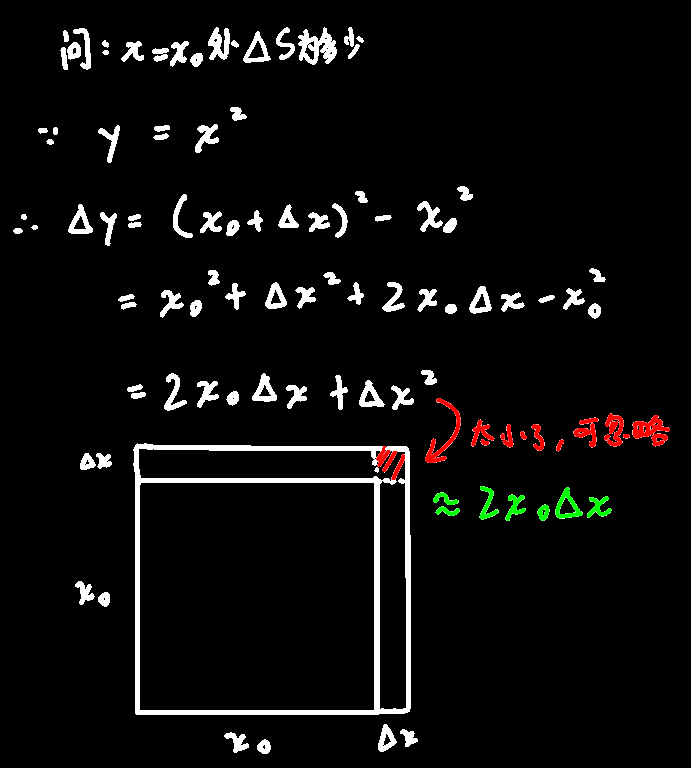 问:x=x₀处ΔS为多少
∵ y = x²
∴ Δy= (x₀+Δx)²- x₀²
= x₀²+Δx²+2x₀Δx-x₀²
= 2x₀Δx+Δx²
太小了,可忽略
≈2x₀Δx
Δx
x₀
x₀
Δx